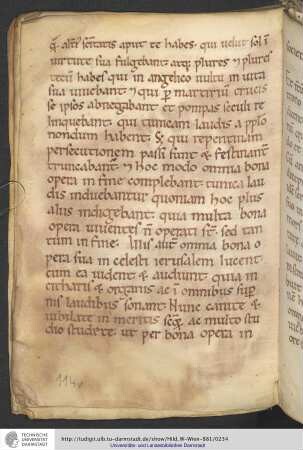 uirtute sua fulgebant atq; plures ⁊ plures
tecum habes qui in angelico uultu in uita
sua uiuebant ⁊ qui p martirium crucis
se ipsos abnegabant et pompas seculi re
linquebant. qui tunicam laudis a pplo
nondum habent. Sʒ qui repentinam
persecutionem passi sunt & festinant
truncabant. ⁊ hoc modo omnia bona
opera in fine complebant tunica lau
dis induebantur quoniam hoc plus
alijs indigebant. quia multa bona
opera uiuentes n̄ operati sr̄. sed tan
tum in fine. aut̄ omnia bona o
pera sua in celesti ierusalem lucent.
cum ea uident & audiunt. quia in
citharis & organis ac ī omnibus sup̄
nis laudibus sonant. Nunc cauete &
iubilate in meritis ac multo stu
dio studete. ut per bona opera in
114v
TECHNISCHE
UNIVERSITÄT
DARMSTADT
http://tudigit.ulb.tu-darmstadt.de/show/Hild_W-Wien-881/0234
Universitäts- und Landesbibliothek Darmstadt